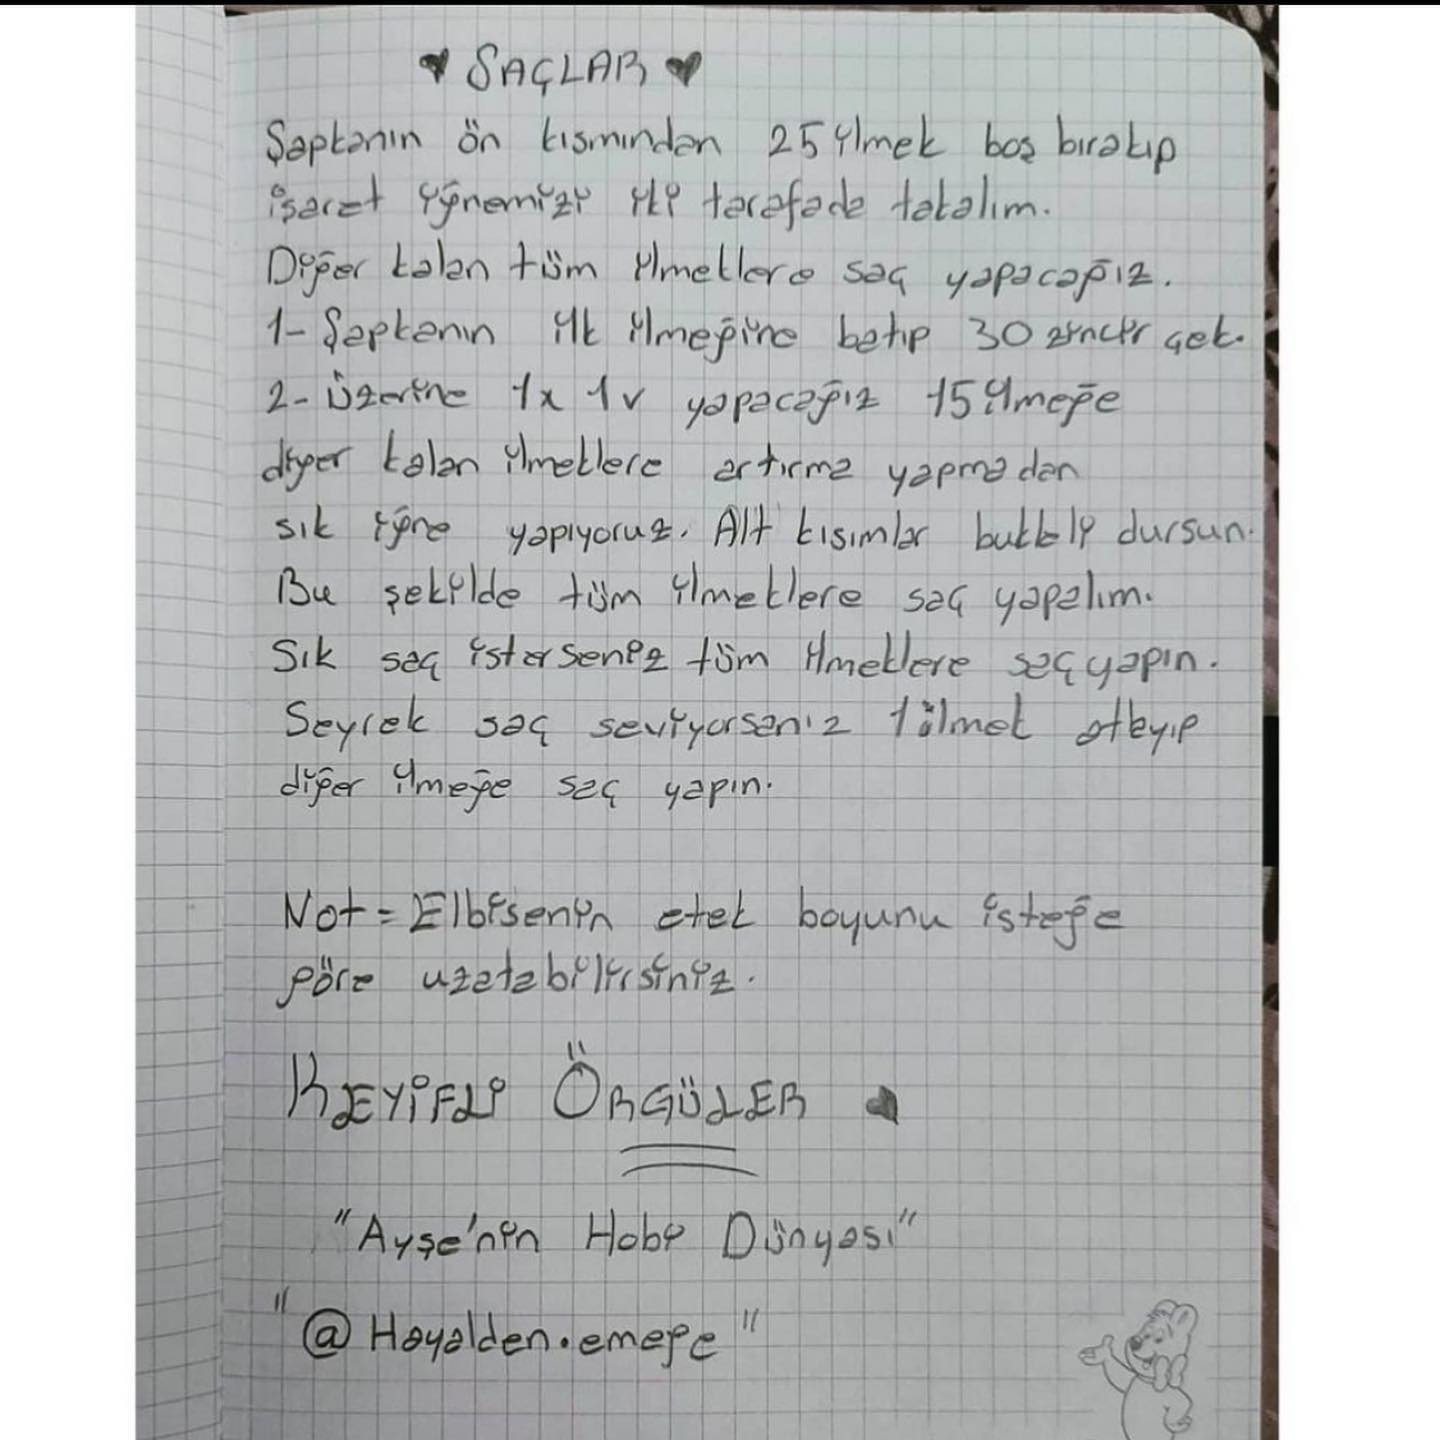 ♥ SAÇLAR ♥
Şapkanın ön kısmından 25 ilmek boş bırakıp
işaret iğnemizi iki tarafada takalım.
Diğer kalan tüm ilmeklere saç yapacağız.
1- Şapkanın ilk ilmeğine batıp 30 zincir çek.
2- Üzerine 1x 1v yapacağız 15 ilmeğe
diğer kalan ilmeklere artırma yapmadan
sık iğne yapıyoruz. Alt kısımlar bukkli dursun.
Bu şekilde tüm ilmeklere saç yapalım.
Sık saç isterseniz tüm ilmeklere saç yapın.
Seyrek saç seviyorsanız 1 ilmek atlayıp
diğer ilmeğe saç yapın.
Not = Elbisenin etek boyunu isteğe
göre uzatabilirsiniz.
KEYİFLİ ÖRGÜLER ♥
"Ayşe'nin Hobi Dünyası"
"@Hayalden.emeğe"